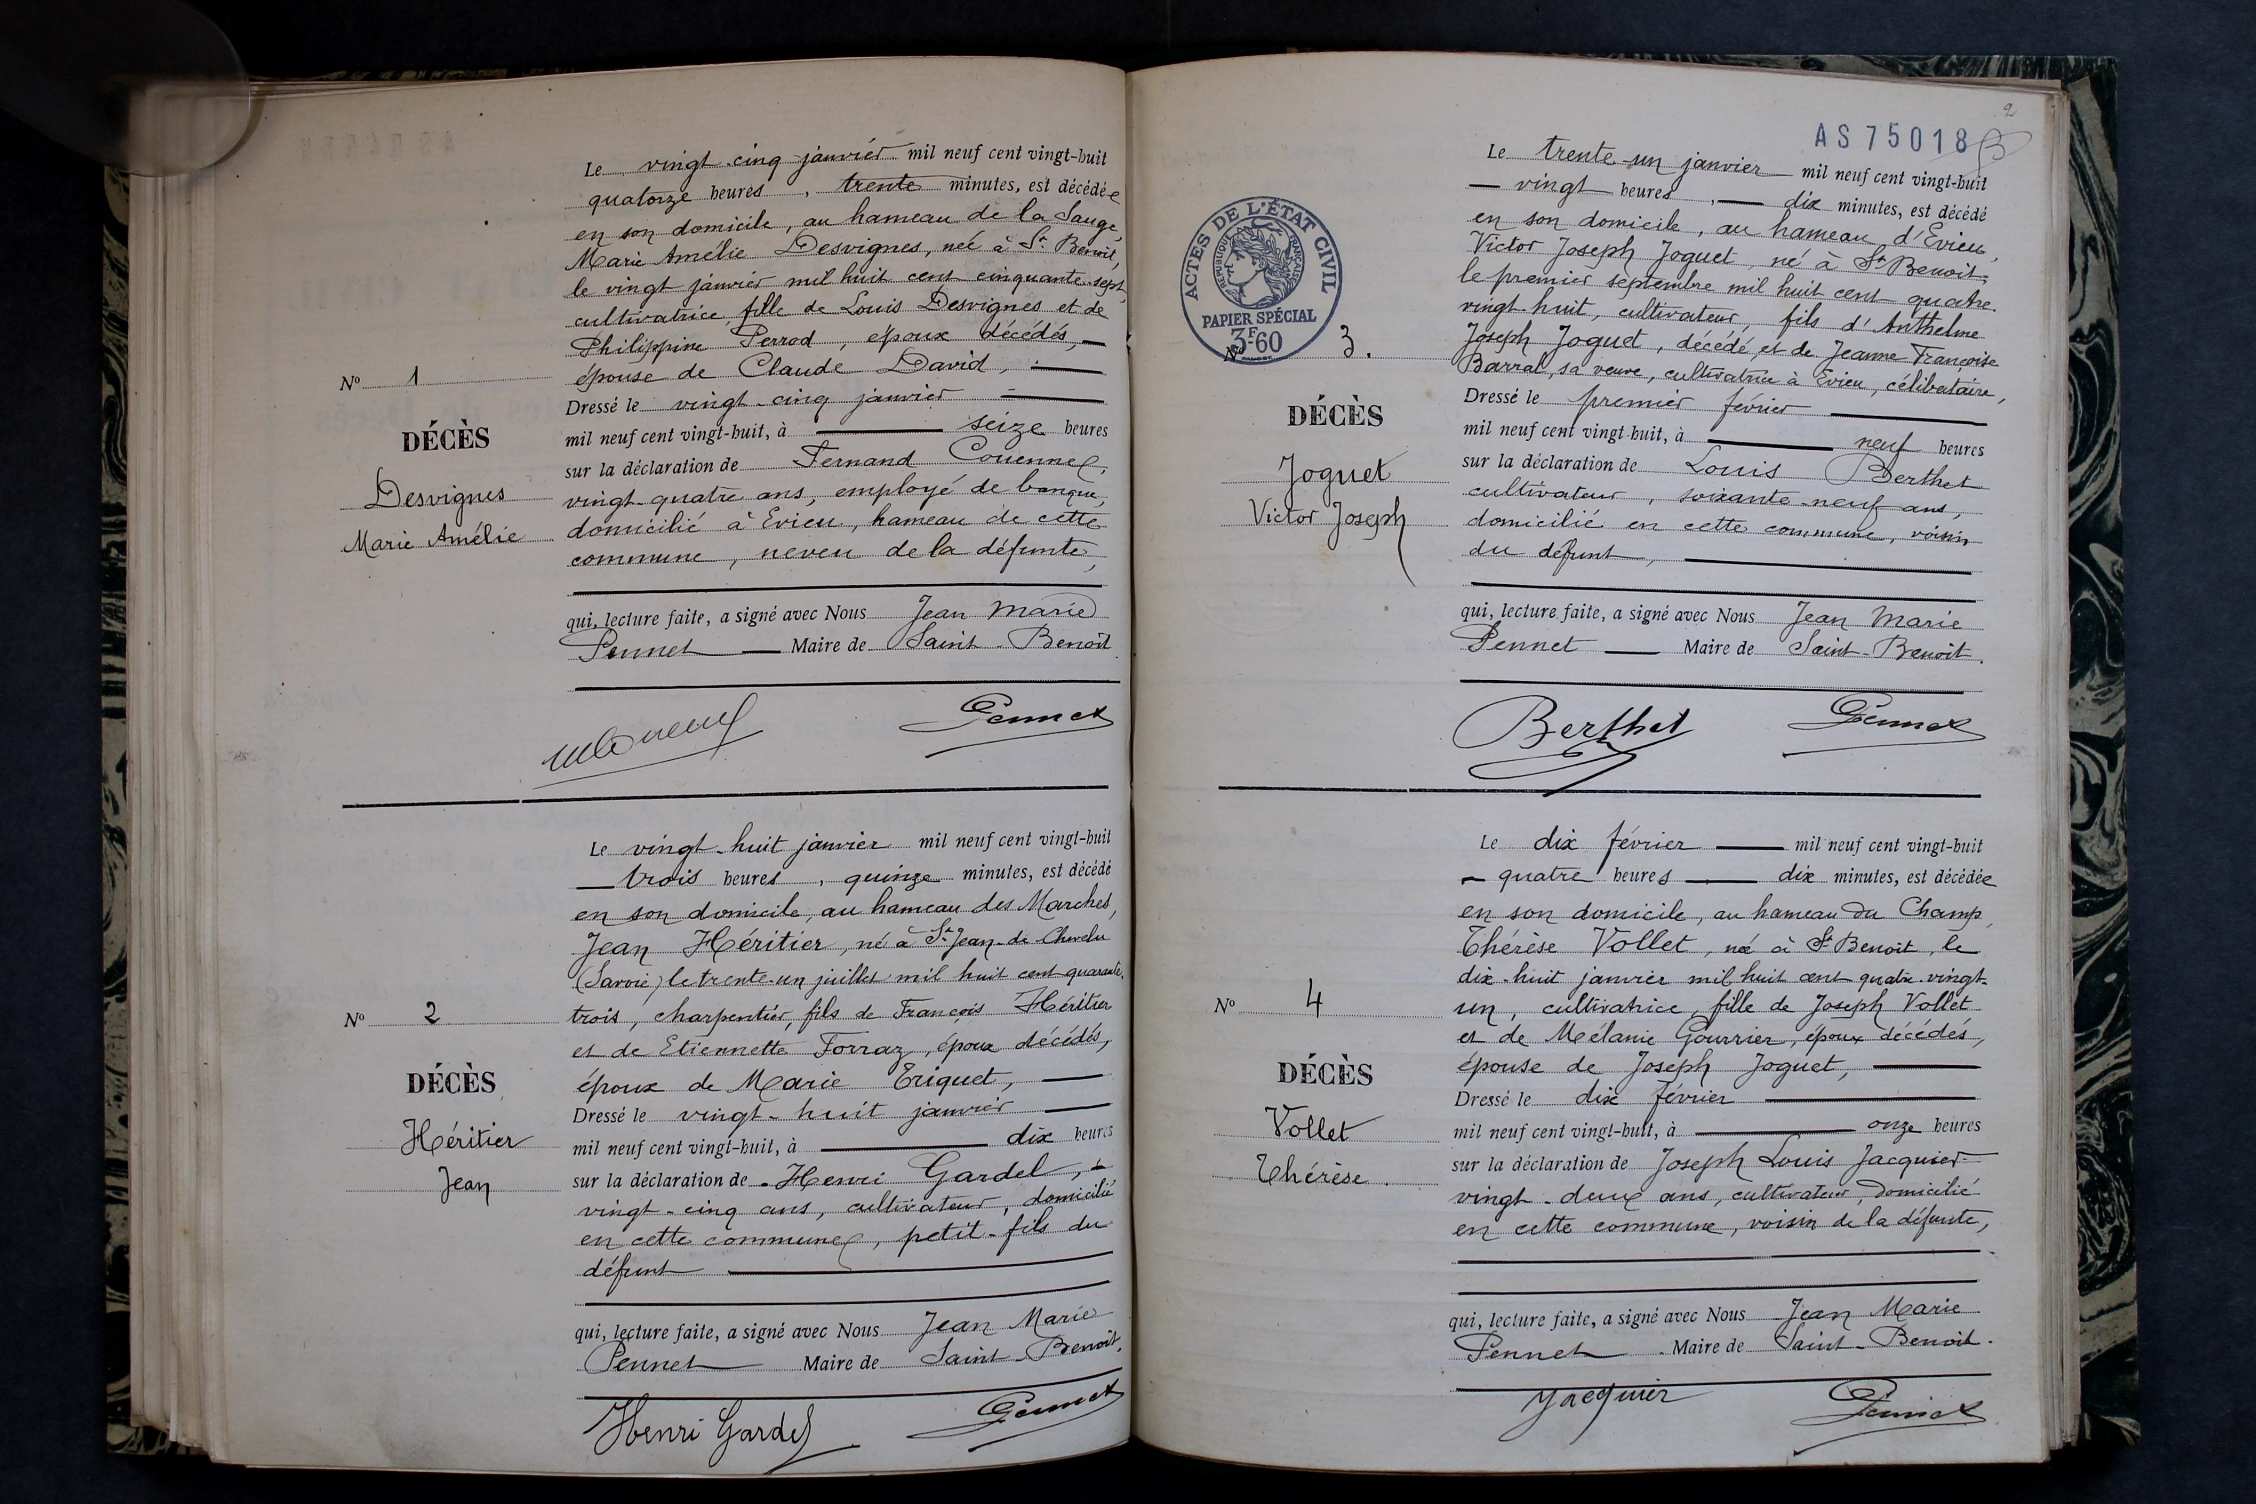 Le vingt-cinq janvier mil neuf cent vingt-huit
quatorze heures, trente minutes, est décédée
en son domicile, au hameau de la Sauge,
Marie Amélie Desvignes, née à St Benoit,
le vingt janvier mil huit cent cinquante-sept,
cultivatrice, fille de Louis Desvignes et de
Philippine Perrod, époux décédés,
épouse de Claude David,
Dressé le vingt-cinq janvier
mil neuf cent vingt-huit, à seize heures
sur la déclaration de Fernand Couennel,
vingt-quatre ans, employé de banque,
domicilié à Evieu, hameau de cette
commune, neveu de la défunte,
qui, lecture faite, a signé avec Nous Jean Marie
Pennet Maire de Saint-Benoit
Pennet
No 1
DÉCÈS
Desvignes
Marie Amélie
Le vingt-huit janvier mil neuf cent vingt-huit
trois heures, quinze minutes, est décédé
en son domicile, au hameau des Marches,
Jean Héritier, né à St Jean-de Chevelu
(Savoie) le trente-un juillet mil huit cent quarante-
trois, charpentier, fils de François Héritier
et de Etiennette Forraz, époux décédés,
époux de Marie Triquet,
Dressé le vingt-huit janvier
mil neuf cent vingt-huit, à dix heures
sur la déclaration de Henri Gardel,
vingt-cinq ans, cultivateur, domicilié
en cette commune, petit-fils du
défunt
qui, lecture faite, a signé avec Nous Jean Marie
Pennet Maire de Saint-Benoit.
Henri Gardel Pennet
No 2
DÉCÈS
Héritier
Jean
2
AS 75018
Le trente-un janvier mil neuf cent vingt-huit
vingt heures, dix minutes, est décédé
en son domicile, au hameau d'Evieu,
Victor Joseph Joguet, né à St Benoit,
le premier septembre mil huit cent quatre-
vingt huit, cultivateur, fils d'Anthelme
Joseph Joguet, décédé, et de Jeanne Françoise
Barral, sa veuve, cultivatrice à Evieu, célibataire,
Dressé le premier février
mil neuf cent vingt-huit, à neuf heures
sur la déclaration de Louis Berthet
cultivateur, soixante-neuf ans,
domicilié en cette commune, voisin
du défunt,
qui, lecture faite, a signé avec Nous Jean Marie
Pennet Maire de Saint-Benoit.
Berthet Pennet
ACTES DE L'ÉTAT CIVIL
RÉPUBLIQUE FRANÇAISE
PAPIER SPÉCIAL
3F60
No 3.
DÉCÈS
Joguet
Victor Joseph
Le dix février mil neuf cent vingt-huit
quatre heures dix minutes, est décédée
en son domicile, au hameau du Champ,
Thérèse Vollet, née à St Benoit, le
dix-huit janvier mil huit cent quatre-vingt-
un, cultivatrice, fille de Joseph Vollet
et de Mélanie Gourrier, époux décédés,
épouse de Joseph Joguet,
Dressé le dix février
mil neuf cent vingt-huit, à onze heures
sur la déclaration de Joseph Louis Jacquier
vingt-deux ans, cultivateur, domicilié
en cette commune, voisin de la défunte,
qui, lecture faite, a signé avec Nous Jean Marie
Pennet Maire de Saint-Benoit.
Jacquier Pennet
No 4
DÉCÈS
Vollet
Thérèse.